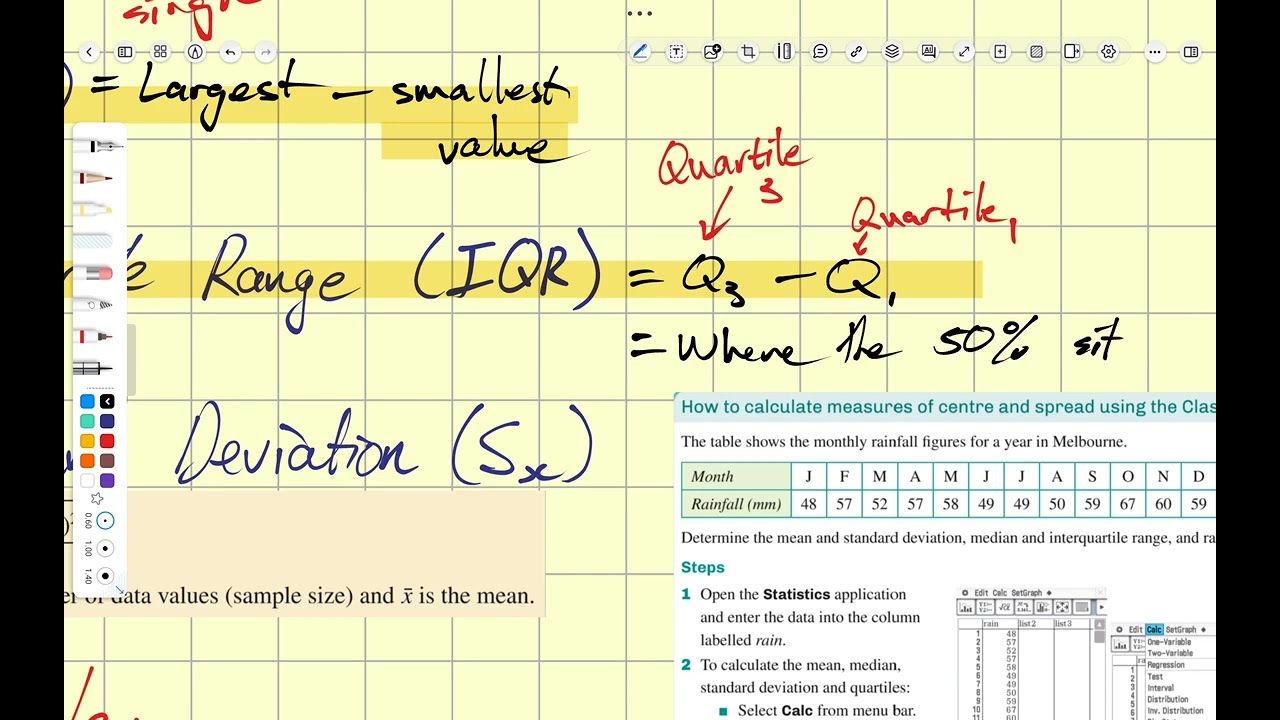 ) = Largest – smallest
value
Quartile
3
Quartile 1
Range (IQR) = Q3 – Q1
= Where the 50% sit
Deviation (Sx)
data values (sample size) and x̄ is the mean.
0.60
1.00
1.40
How to calculate measures of centre and spread using the Clas
The table shows the monthly rainfall figures for a year in Melbourne.
Month J F M A M J J A S O N D
Rainfall (mm) 48 57 52 57 58 49 49 50 59 67 60 59
Determine the mean and standard deviation, median and interquartile range, and ra
Steps
1 Open the Statistics application
and enter the data into the column
labelled rain.
2 To calculate the mean, median,
standard deviation and quartiles:
■ Select Calc from menu bar.
Edit Calc SetGraph
rain list2 list3
1 48
2 57
3 52
4 57
5 58
6 49
7 49
8 50
9 59
10 67
11 60
Edit Calc SetGraph
One-Variable
Two-Variable
Regression
Test
Interval
Distribution
Inv. Distribution